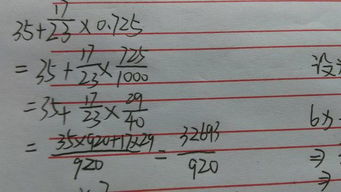 35+17/23×0.725
=35+17/23×725/1000
=35+17/23×29/40
=(35×920+17×29)/920=32693/920
没
6x
⇒
⇒